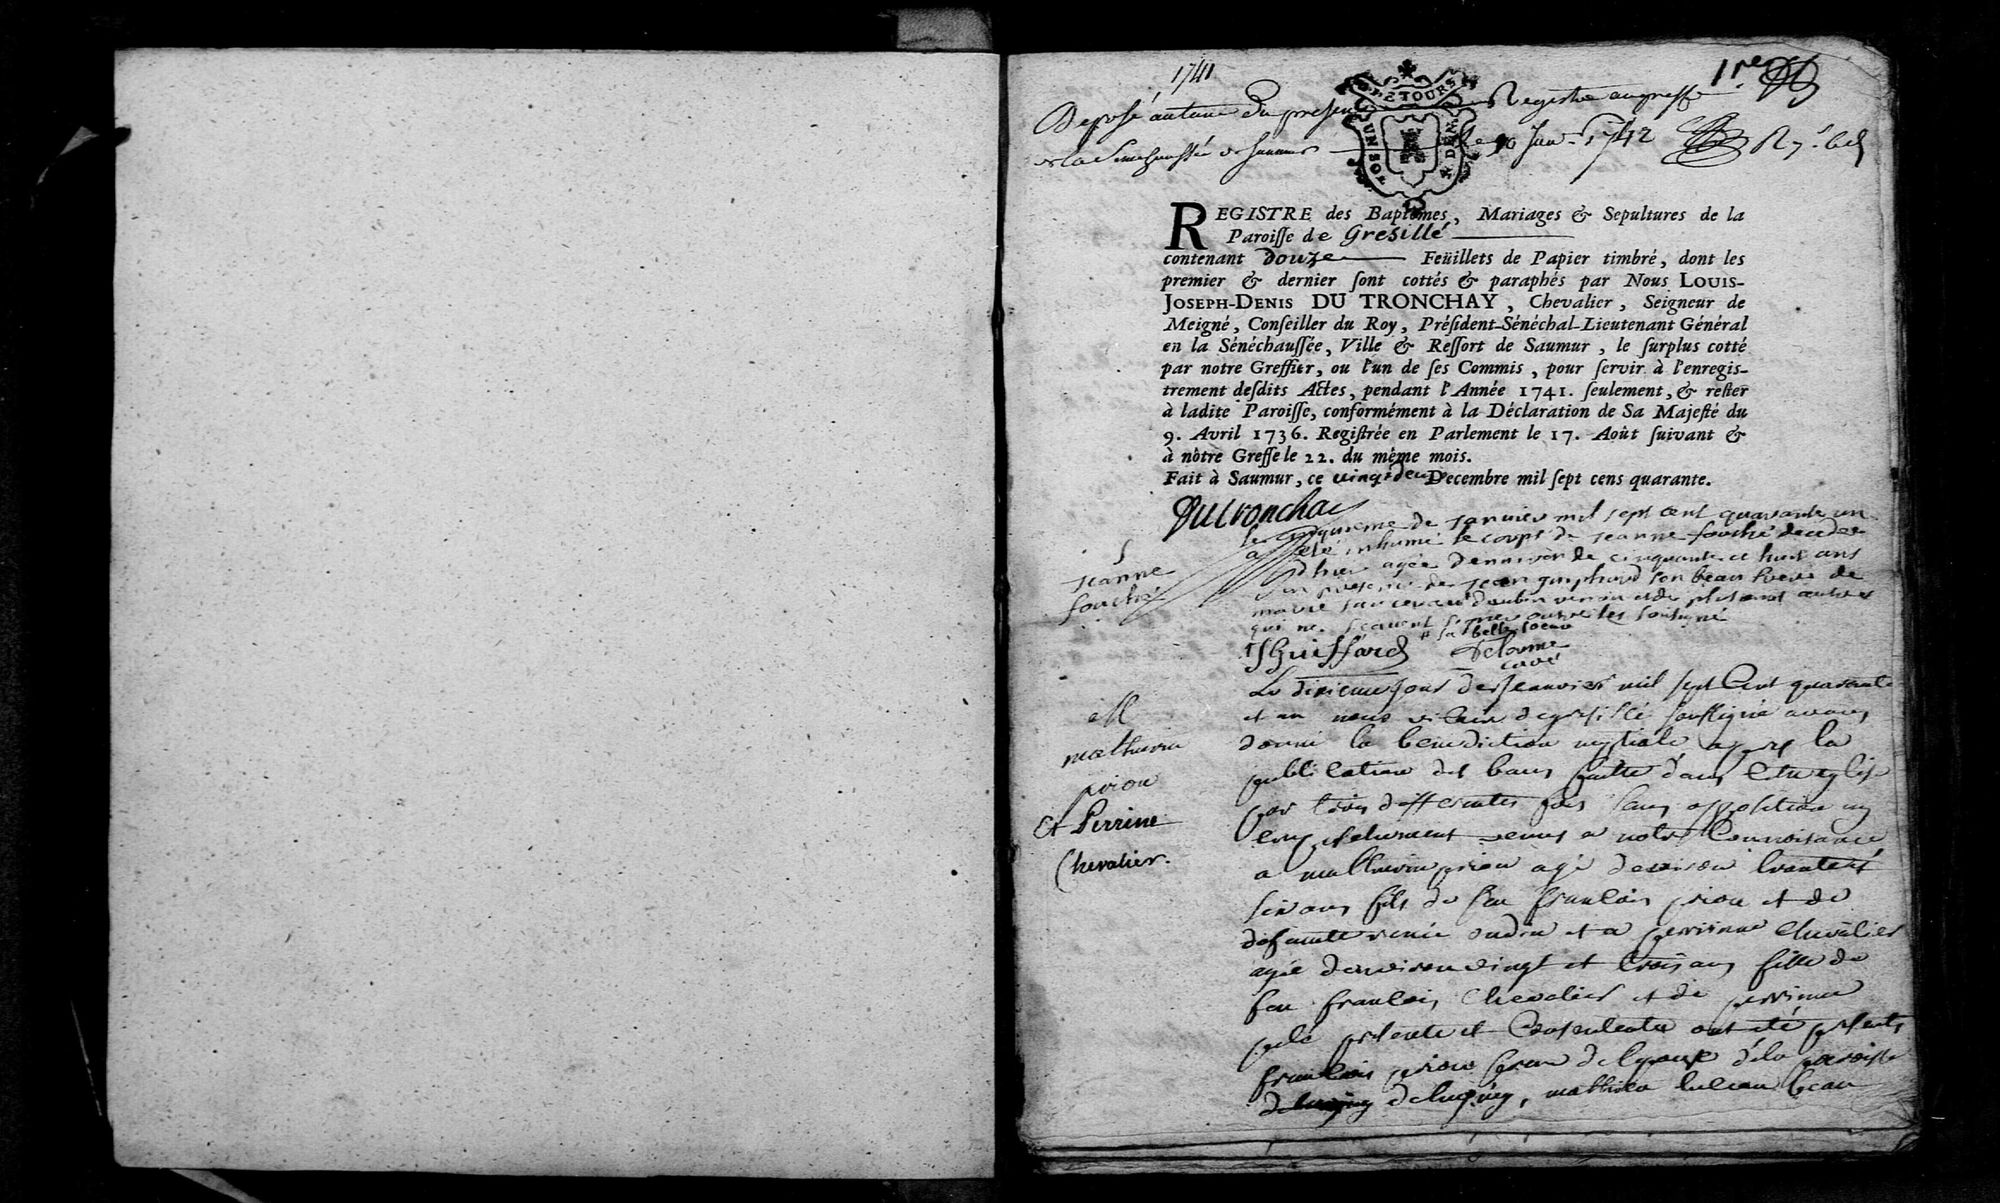 1741
1re
Deposé autant du present Registre au greffe
de la Senechaussée de Saumur le 30 Janr 1742
DE TOURS
UN SOL
REGISTRE des Baptêmes, Mariages & Sepultures de la
Paroisse de Gresillé
contenant douze Feüillets de Papier timbré, dont les
premier & dernier sont cottés & paraphés par Nous LOUIS-
JOSEPH-DENIS DU TRONCHAY, Chevalier, Seigneur de
Meigné, Conseiller du Roy, Président-Sénéchal-Lieutenant Général
en la Sénéchaussée, Ville & Ressort de Saumur, le surplus cotté
par notre Greffier, ou l'un de ses Commis, pour servir à l'enregis-
trement desdits Actes, pendant l'Année 1741. seulement, & rester
à ladite Paroisse, conformément à la Déclaration de Sa Majesté du
9. Avril 1736. Registrée en Parlement le 17. Août suivant &
à nôtre Greffe le 22. du même mois.
Fait à Saumur, ce vingt deux Decembre mil sept cens quarante.
Dutronchay
S
Jeanne
fouché
le cinquieme de janvier mil sept cent quarante un
a été inhumé le corps de jeanne fouché decedee
d'hier agée denviron de cinquante et huit ans
en presence de jean guiphard son beau frere de
marie et de plusieurs autres
qui ne scavent signer outre les soutsigné
# sa belle soeur
J Guiffard Delorme
curé
M
mathurin
piron
Et Perrine
Chevalier.
Le dixieme jour de Jeanvier mil sept Cent quarante
et un nous vicaire de gresillé soussigné avons
donné la benediction nuptiale apres la
publication des bans faitte dans cette eglise
par trois differentes fois sans opposition ny
empeschement venus a notre Connoisance
a mathurin piron agé denviron trante
six ans fils de feu francois piron et de
defunte renée oudin et a perrinne Chevalier
agée denviron vingt et trois ans fille de
feu francois Chevalier et de perrinne
pelé presente et Consentente ont été presents
francois piron frere de lepoux de la paroisse
de luigné, mathieu beau